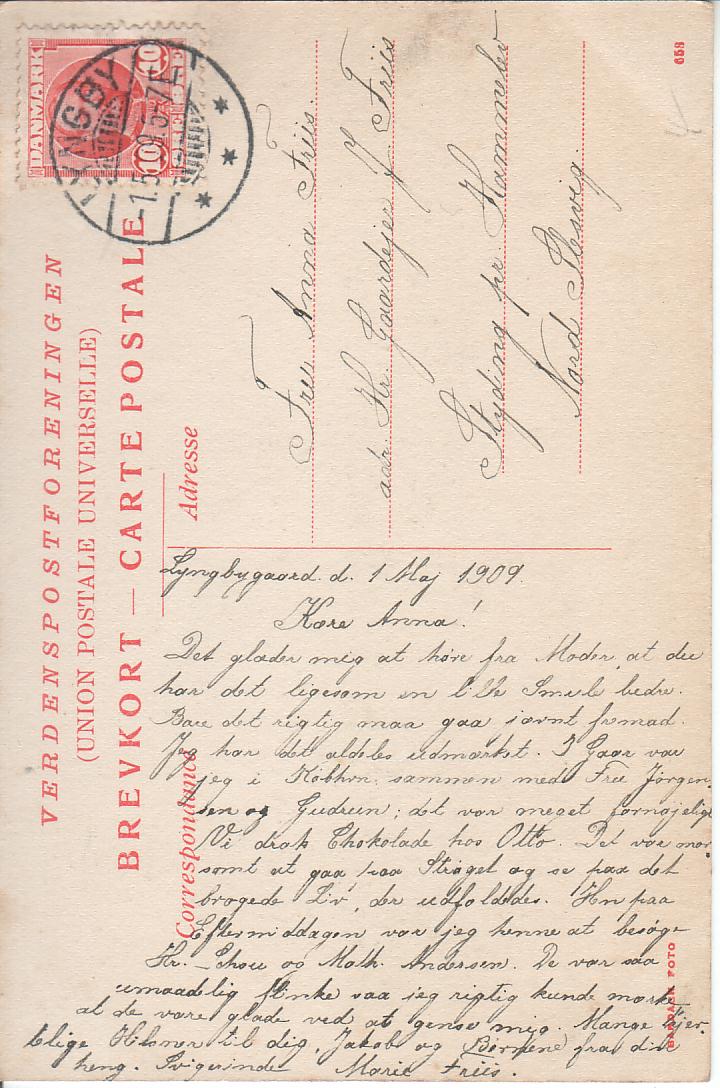 VERDENSPOSTFORENINGEN
(UNION POSTALE UNIVERSELLE)
BREVKORT — CARTE POSTALE
DANMARK
10 10
LYNGBY
1.5.09.5-7E
Adresse
Fru Anna Friis.
adr. Hr. Gaardejer J. Friis
Styding pr. Hammelev
Nord Slesvig.
658
Correspondance
Lyngbygaard. d. 1 Maj 1909.
Kære Anna!
Det glæder mig at høre fra Moder, at du
har det ligesom en lille Smule bedre.
Bare det rigtig maa gaa jævnt fremad.
Jeg har det aldeles udmærket. I Gaar var
jeg i Købhvn. sammen med Fru Jørgen-
sen og Gudrun; det var meget fornøjeligt
Vi drak Chokolade hos Otto. Det var mor
somt at gaa paa Strøget og se paa det
brogede Liv, der udfoldedes. Hen paa
Eftermiddagen var jeg henne at besøge
Hr. Schou og Math. Andersen. De var saa
umaadelig flinke saa jeg rigtig kunde mærke
at de vare glade ved at gense mig. Mange hjer-
telige Hilsner til dig, Jakob og Børnene fra din
heng. Svigerinde Marie Friis.
FOTO